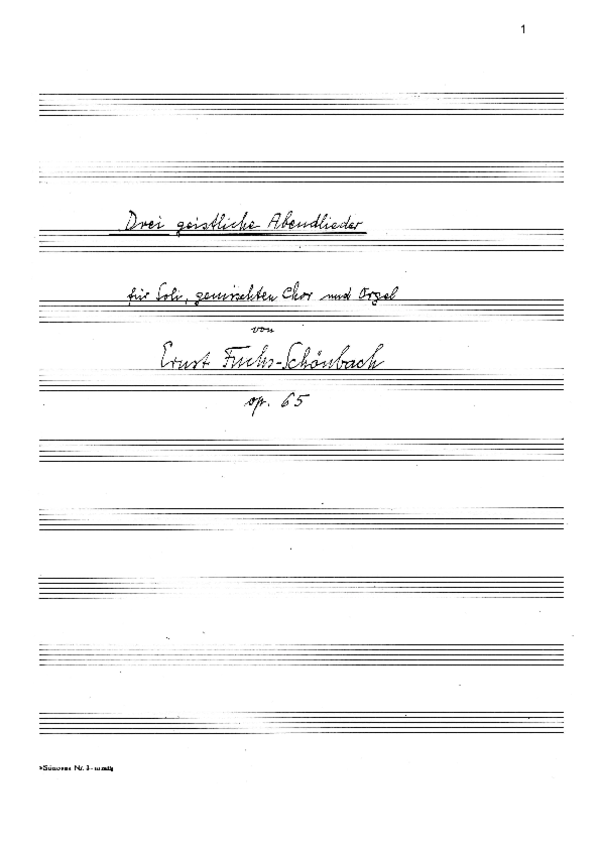 1
Drei geistliche Abendlieder
für Soli, gemischten Chor und Orgel
von
Ernst Fuchs-Schönbach
op. 65
Nr. 3